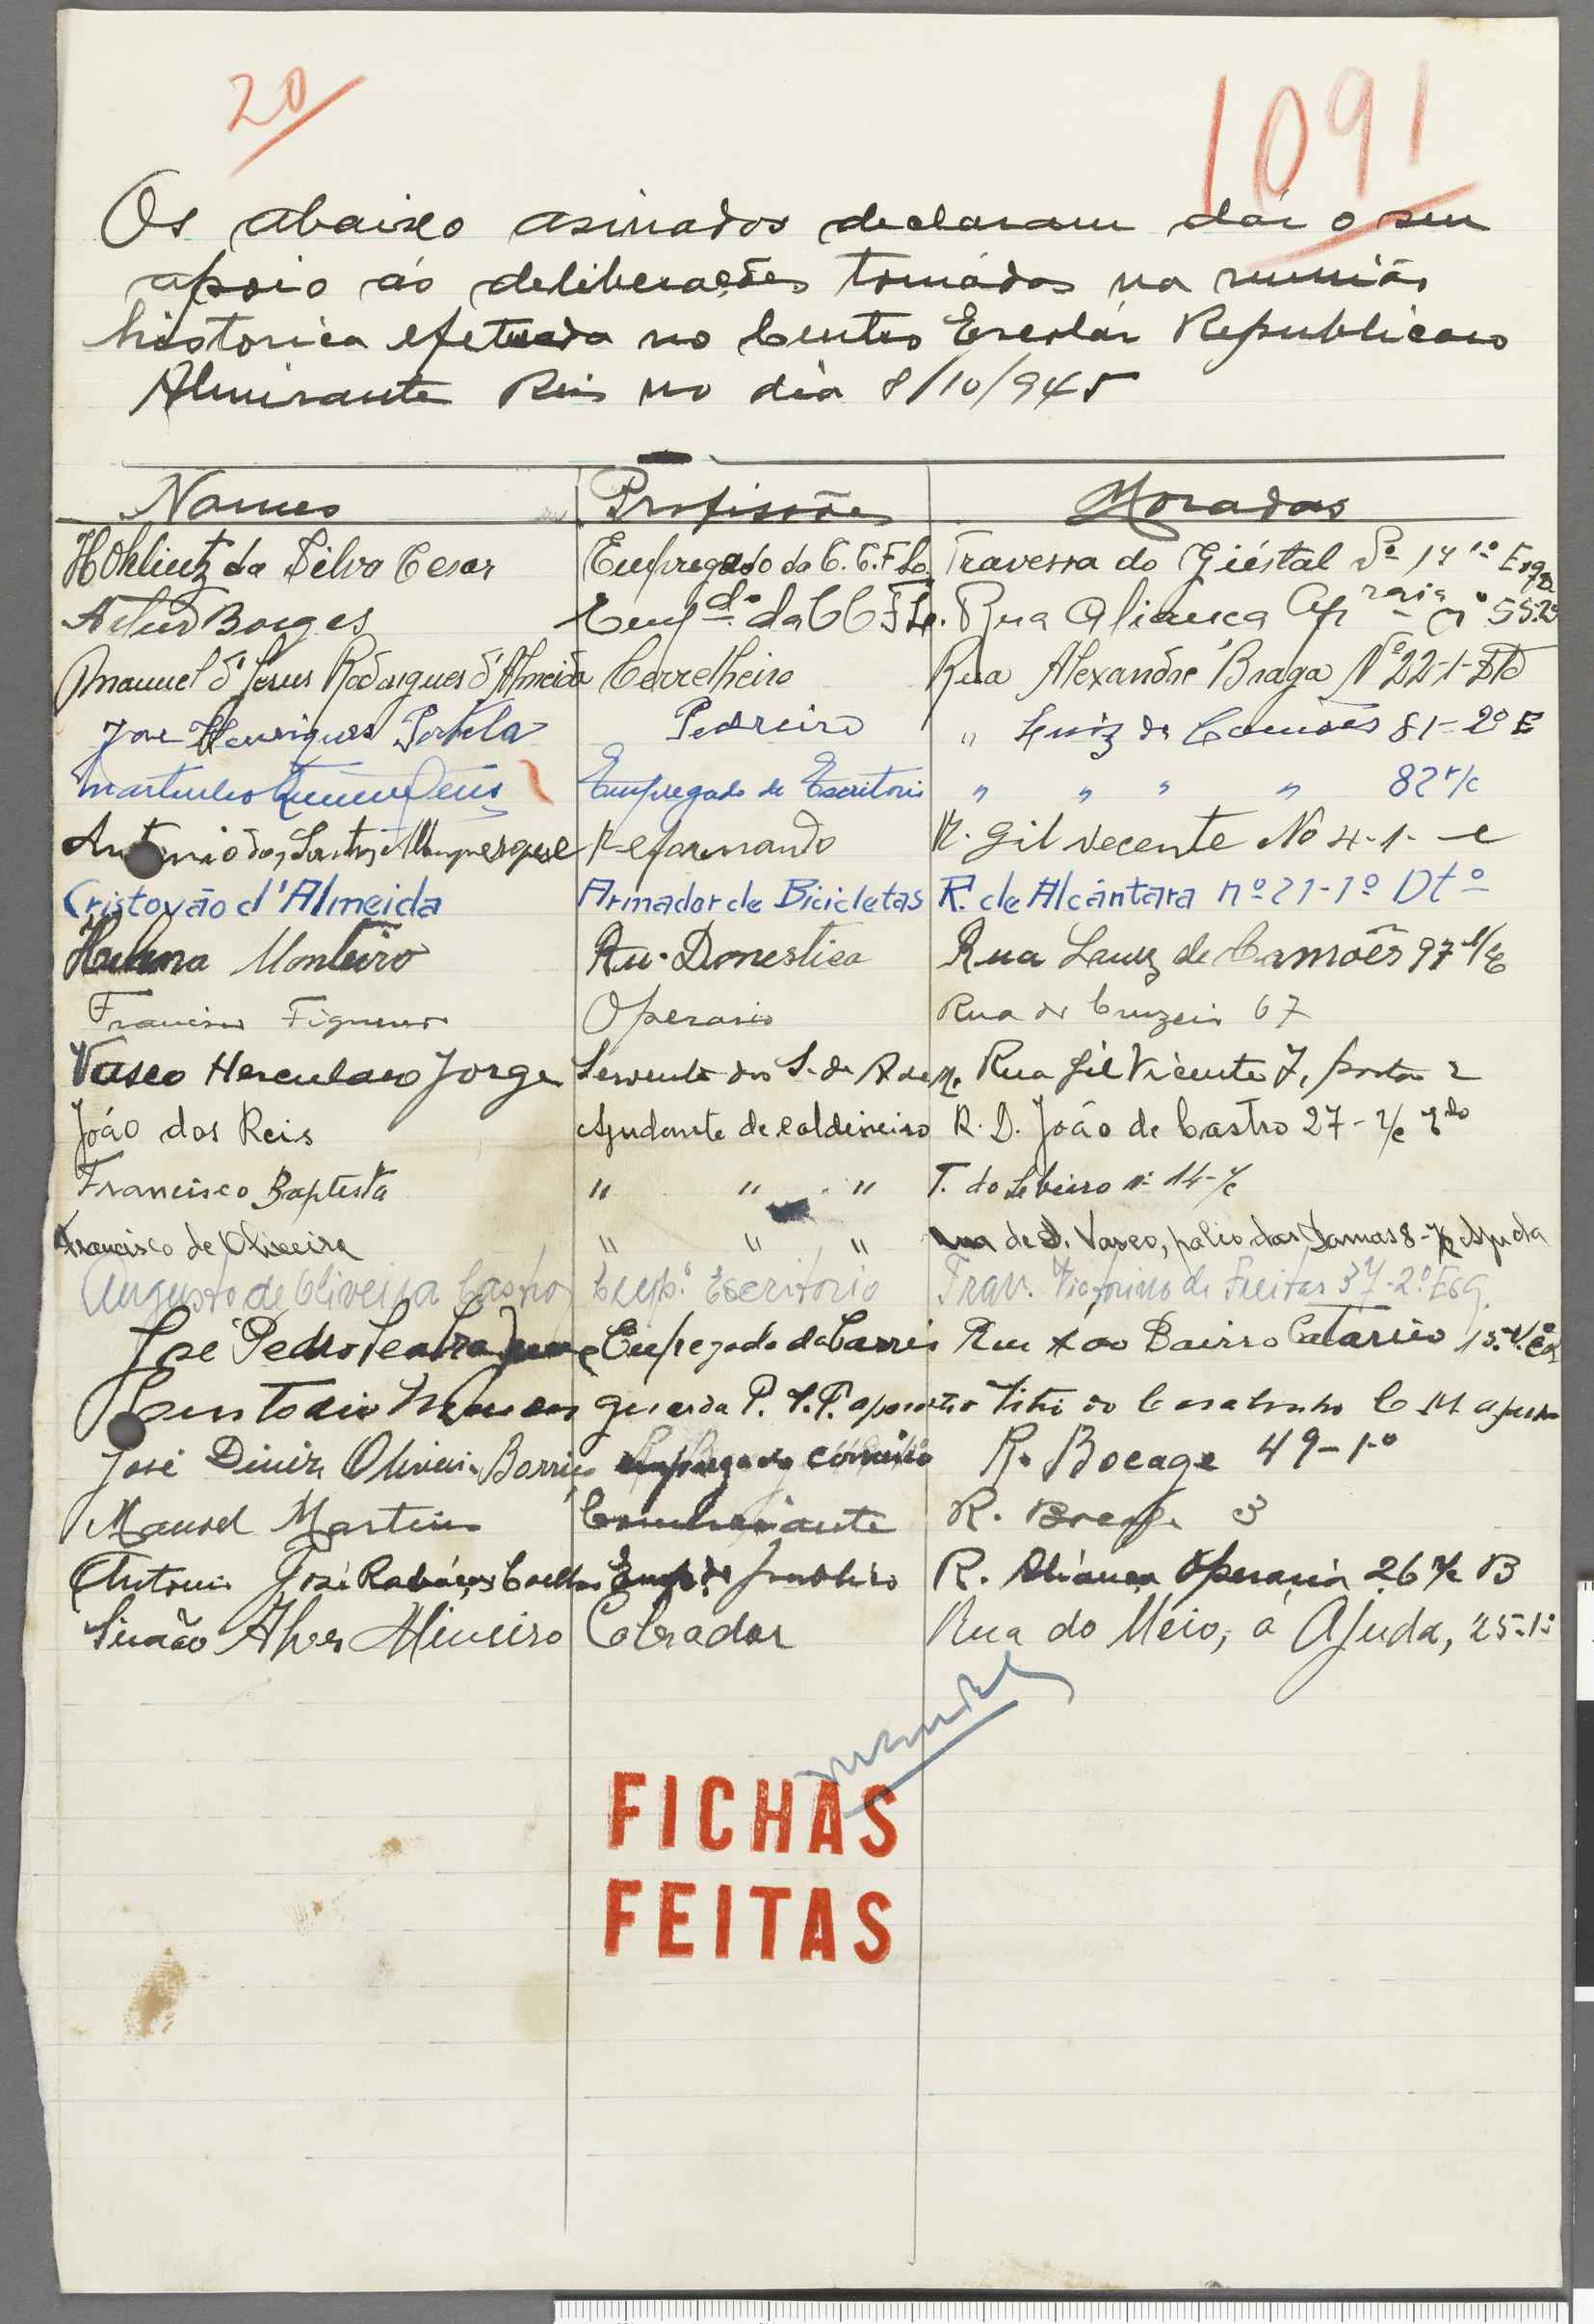 20
1091
Os abaixo asinados declaram dár o seu
apoio ás deliberações tomádas na reunião
historica efetuada no Centro Escolár Republicano
Almirante Reis no dia 8/10/945
Nomes Profissões Moradas
da Silva Cesar Empregado da C.C.F.L. Travessa do Giéstal 1º Esq
Artur Borges Empdo da CCFL. Rua Aliança Op raria nº 55.2º
Manuel d'Jesus Rodrigues d'Almeida Cerrelheiro Rua Alexandre Braga Nº 22-1-Dto
José Henriques Portela Pedreiro " Luiz de Camões 81-2º E
Martinho Empregado de Escritorio " " " " 82 r/c
Antonio dos Santos Reformando R. Gil vecente No 4-1-
Cristovão d'Almeida Armador de Bicicletas R. de Alcântara nº 21-1º Dtº
Helena Monteiro Domestica Rua Luiz de Camões 97
Francisco Figueiredo Operario Rua do Cruzeiro 67
Vasco Herculano Jorge Servente dos S. de Rua Gil Vicente 7, porta 2
João dos Reis Ajudante de caldeireiro R. D. João de Castro 27-r/c
Francisco Baptista " " " T. do nº 14-r/c
Francisco de Oliveira " " " Rua de D. Vasco, patio das Damas 8-r/c Ajuda
Augusto de Oliveira Castro Empº Escritorio Trav. Victorino de Freitas 37-2º Esq.
José Pedro Seabra Empregado da Carris Rua X ao Bairro Catarino 15
guarda P. S. P. Sitio do Casalinho
José Diniz Oliveira empregado comércio R. Bocage 49-1º
Manoel Martins Comerciante R. Bocage 3
Antonio José Coelho R. Aliança Operaria 26 r/c B
Simão Alves Mineiro Cobrador Rua do Meio, á Ajuda, 25-1º
FICHAS
FEITAS